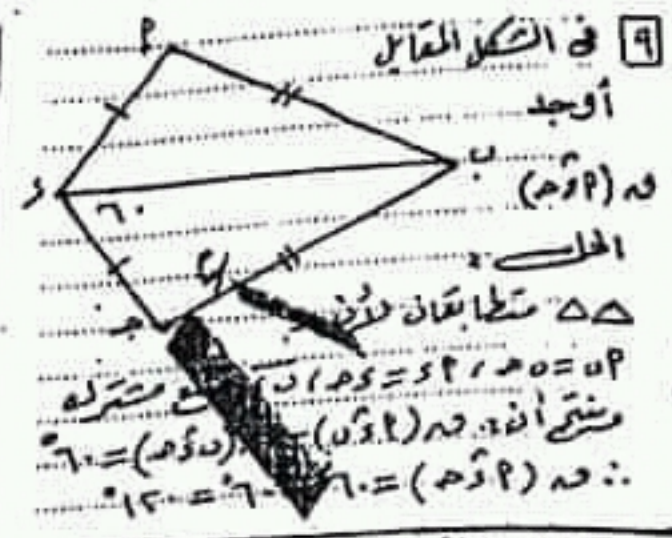 ٩ في الشكل المقابل
أوجد
ق (أ د̂ جـ)
الحل :
△△ متطابقان لأن
أب = ب جـ ، أ د = د جـ ، ب د مشترك
ينتج أن : ق (أ د̂ ب) = (ب د̂ جـ) = ٦٠°
∴ ق (أ د̂ جـ) = ٦٠ ٦٠° = ١٢٠°
أ
ب
د
٦٠
جـ